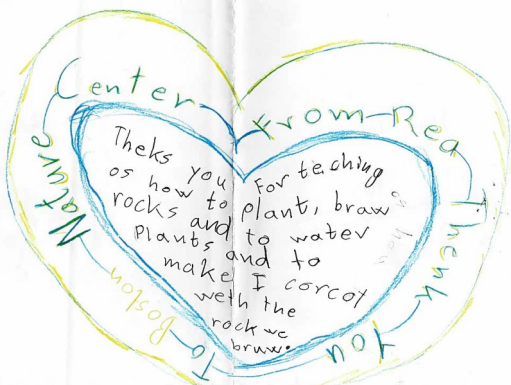 Thenk you
To Boston
Nature Center
From Rea
Theks you For teching
os how to plant, braw
rocks and to water
Plants and to
make I corcoy
weth the
rock we
bruw.